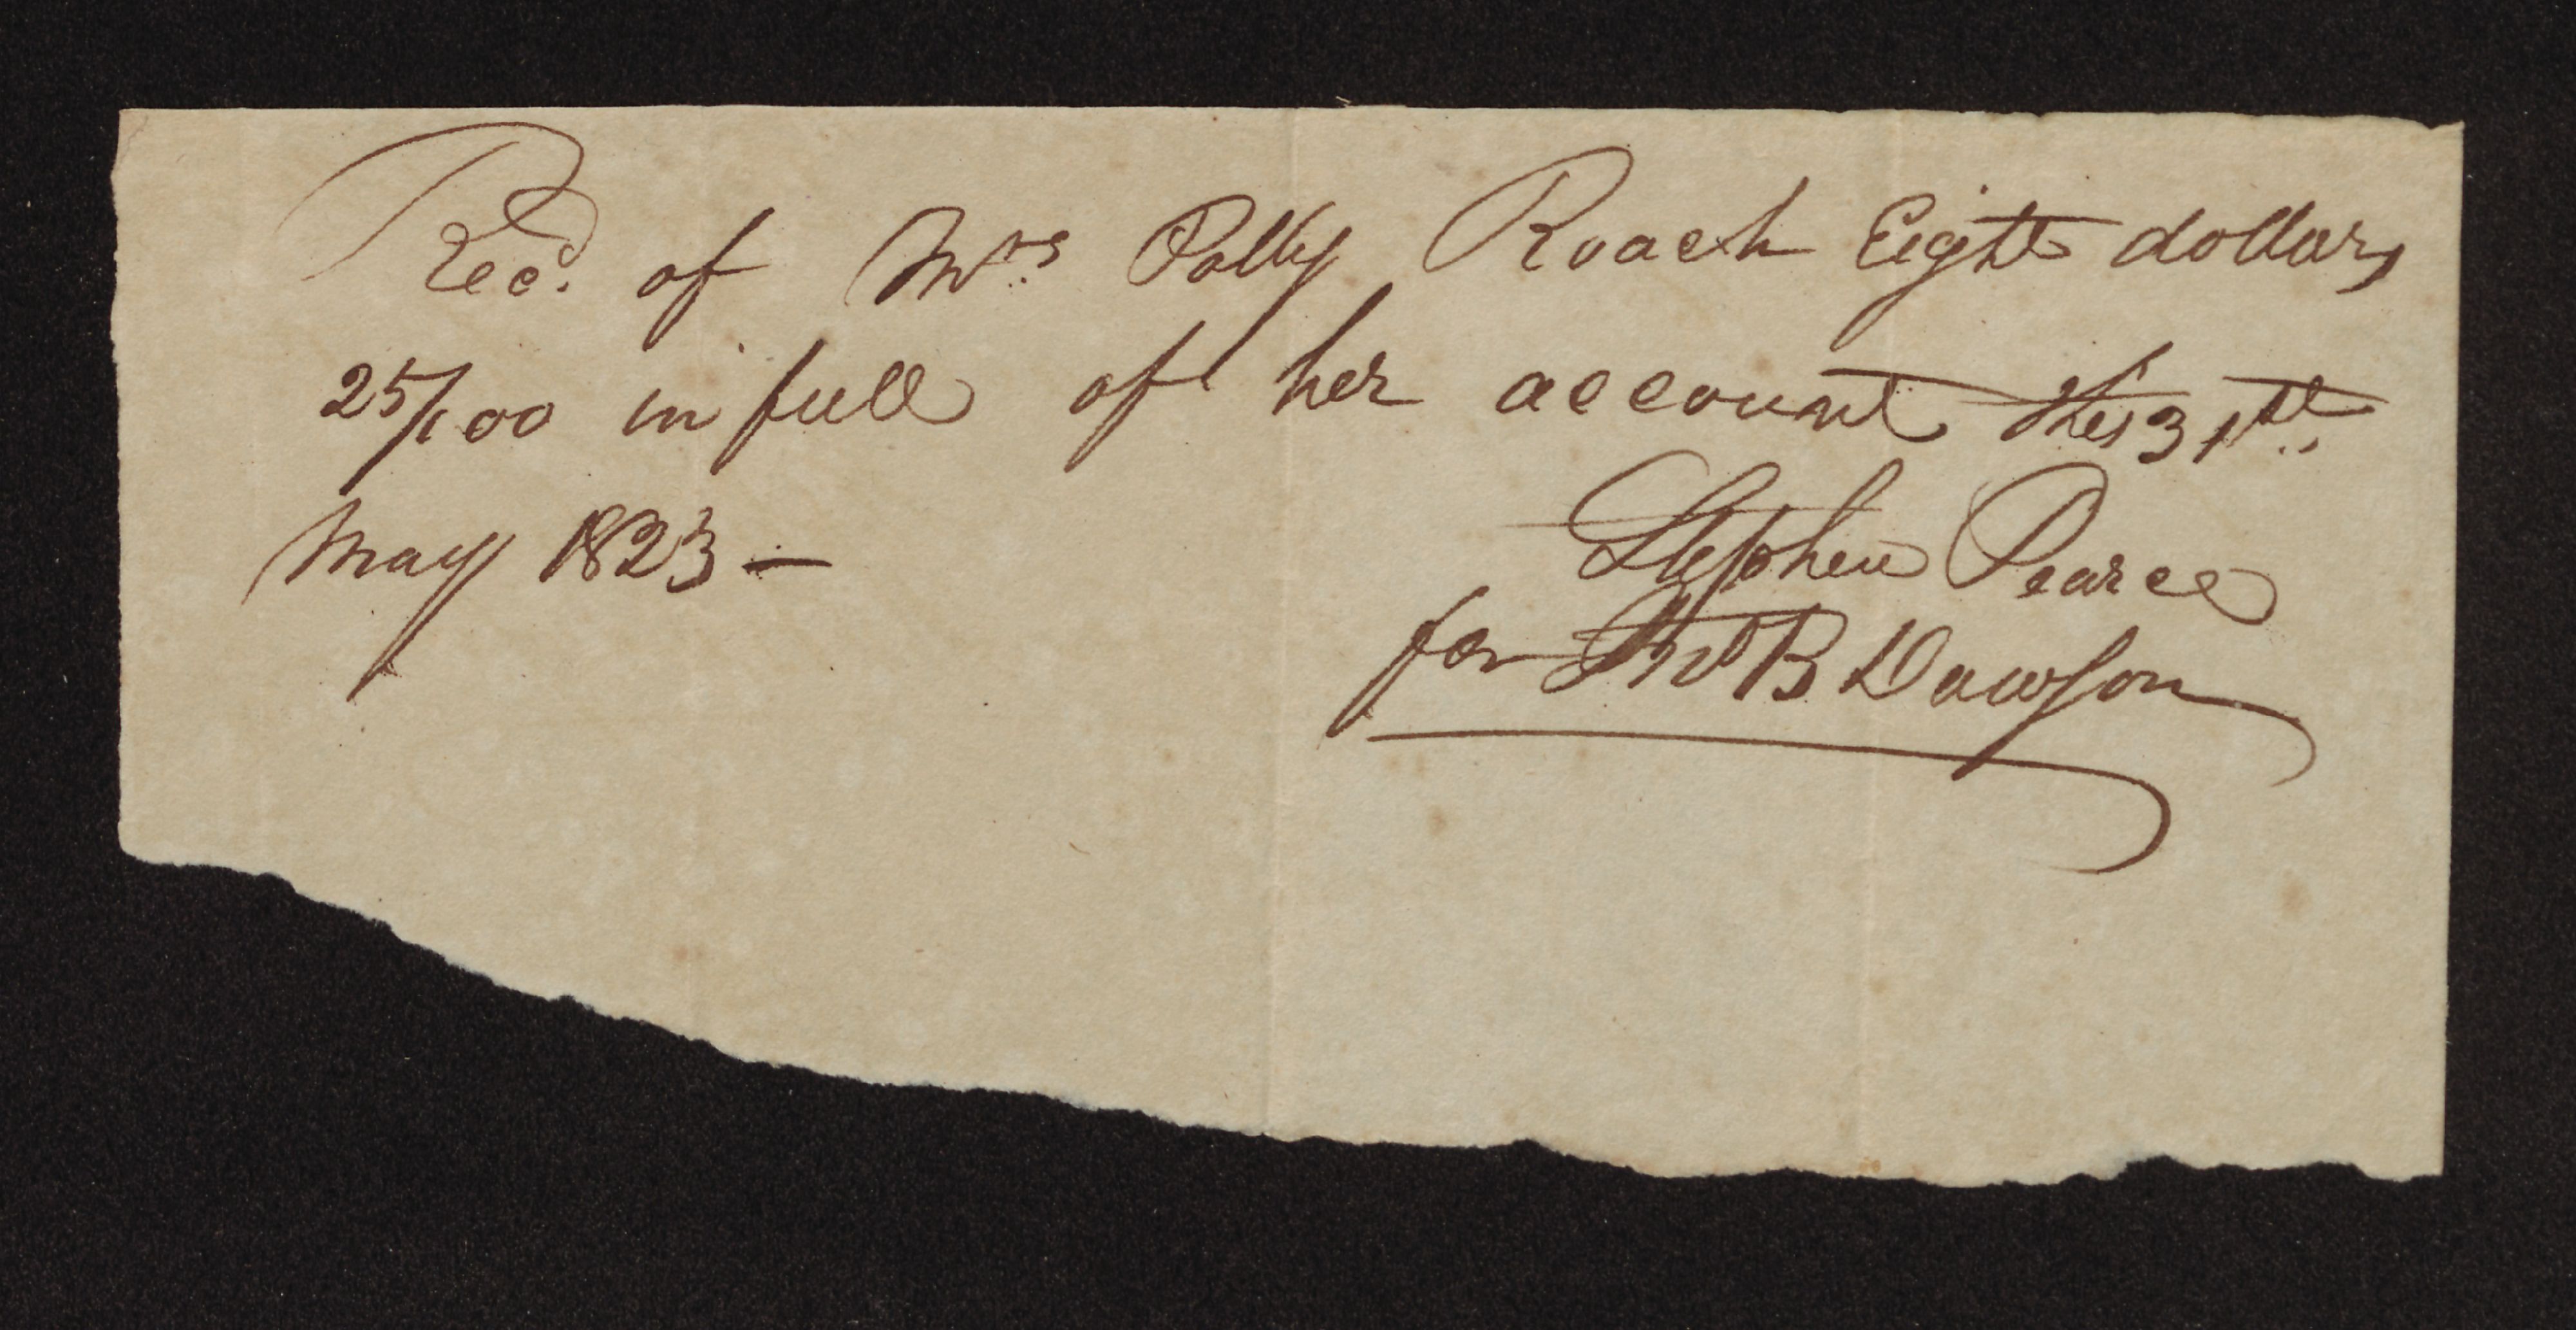 Recd. of Mrs Polly Roach Eight dollars
25/100 in full of her account this 31th
May 1823 —
Stephen Pearce
for B Dawson